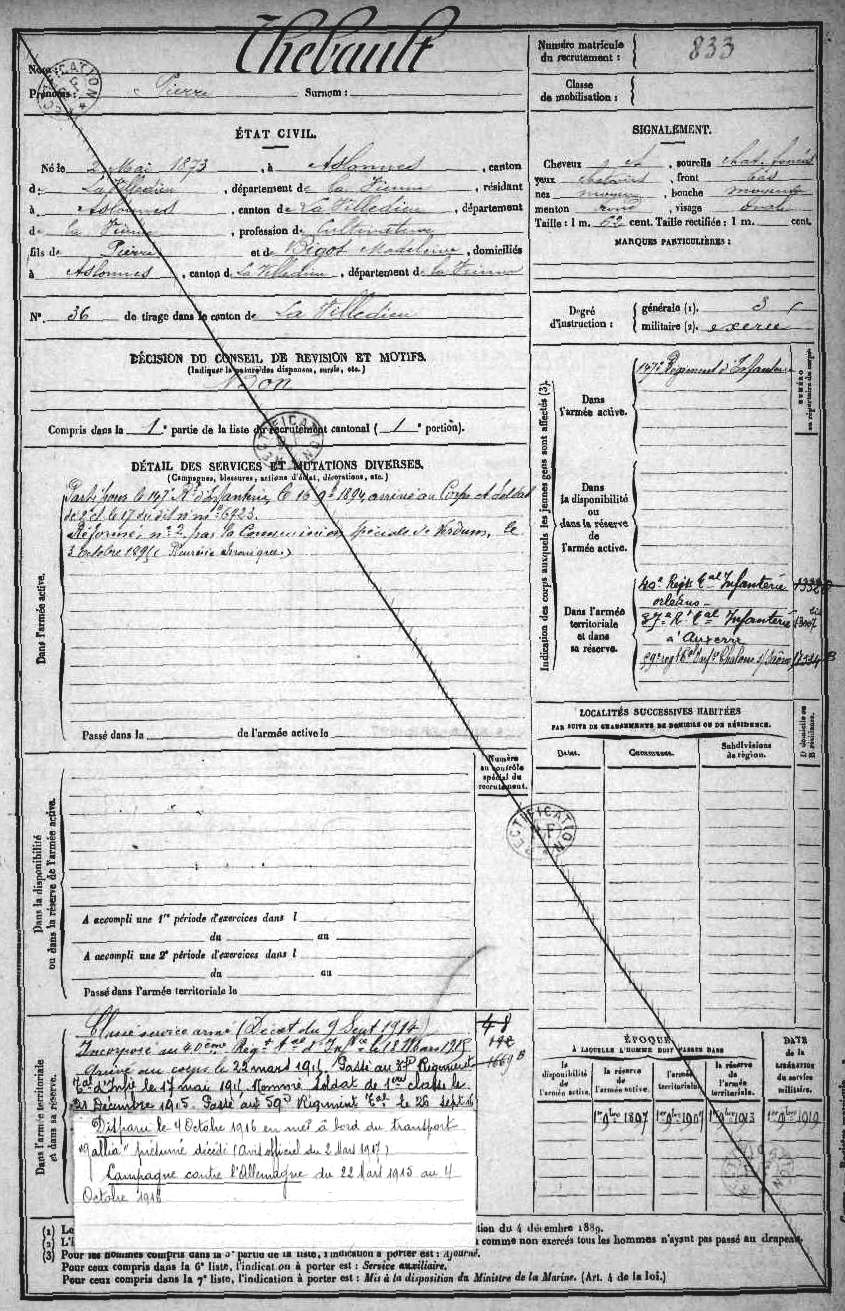 Thebault
Nom :
Prénoms : Pierre Surnom :
Numéro matricule du recrutement : 833
Classe de mobilisation :
RECTIFICATION
ÉTAT CIVIL.
Né le 2 Mai 1873, à Aslonnes, canton
de La Villedieu, département de la Vienne, résidant
à Aslonnes, canton de La Villedieu, département
de la Vienne, profession de Cultivateur
fils de Pierre et de Bigot Madeleine, domiciliés
à Aslonnes, canton de La Villedieu, département de la Vienne
N° 36 de tirage dans le canton de La Villedieu
SIGNALEMENT.
Cheveux et, sourcils chat. foncés
yeux, front bas
nez moyen, bouche moyenne
menton rond, visage ovale
Taille : 1 m. 62 cent. Taille rectifiée : 1 m. cent.
MARQUES PARTICULIÈRES :
Degré d'instruction : générale (1). 3
militaire (2). exercé
DÉCISION DU CONSEIL DE REVISION ET MOTIFS.
(Indiquer la nature des dispenses, sursis, etc.)
Bon
Compris dans la 1e partie de la liste du recrutement cantonal (1e portion).
RECTIFICATION
DÉTAIL DES SERVICES ET MUTATIONS DIVERSES.
(Campagnes, blessures, actions d'éclat, décorations, etc.)
Dans l'armée active.
Parti pour le 147e Rt d'Infanterie, le 16 9bre 1894, arrivé au Corps et soldat
de 2e cl. le 17 du dit n° mle 6923.
Réformé n° 2 par la Commission spéciale de Verdun, le
3 Octobre 1895 (
Passé dans la de l'armée active le
Indication des corps auxquels les jeunes gens sont affectés (3).
NUMÉRO au répertoire du corps
Dans l'armée active. 147e Régiment d'Infanterie
Dans la disponibilité ou dans la réserve de l'armée active.
Dans l'armée territoriale et dans sa réserve.
40e Regt Tal Infanterie
Orléans
37e Rt Tal Infanterie
à Auxerre
59e regt Tal Infie Chalons s/ Saône
LOCALITÉS SUCCESSIVES HABITÉES
PAR SUITE DE CHANGEMENTS DE DOMICILE OU DE RÉSIDENCE.
Dates. Communes. Subdivisions de région. D domicile ou R résidence.
Numéro au contrôle spécial du recrutement.
RECTIFICATION
Dans la disponibilité ou dans la réserve de l'armée active.
A accompli une 1re période d'exercices dans l
du au
A accompli une 2e période d'exercices dans l
du au
Passé dans l'armée territoriale le
Dans l'armée territoriale et dans sa réserve.
Classé service armé (Décret du 9 Sept 1914)
Incorporé au 40ème Régt Tal d'Infie le 18 Mars 1915
Arrivé au corps le 22 mars 1915. Passé au 37e Régiment
Tal d'Infie le 17 mai 1915 Nommé Soldat de 1ère classe le
21 Décembre 1915. Passé au 59e Régiment Tal le 26 sept 16
Disparu le 4 Octobre 1916 en mer à bord du transport
"Gallia" présumé décédé (avis officiel du 2 Mars 1917)
Campagne contre l'Allemagne du 22 Mars 1915 au 4
Octobre 1916
48
ÉPOQUE
À LAQUELLE L'HOMME DOIT PASSER DANS
DATE de la LIBÉRATION du service militaire.
la disponibilité de l'armée active. la réserve de l'armée active. l'armée territoriale. la réserve de l'armée territoriale.
1er 9bre 1897 1er 9bre 1907 1er 9bre 1913 1er 9bre 1919
(1) Le
tion du 4 décembre 1889.
(2) L'i
comme non exercés tous les hommes n'ayant pas passé au drapeau.
(3) Pour les hommes compris dans la 5e partie de la liste, l'indication à porter est : Ajourné.
Pour ceux compris dans la 6e liste, l'indication à porter est : Service auxiliaire.
Pour ceux compris dans la 7e liste, l'indication à porter est : Mis à la disposition du Ministre de la Marine. (Art. 4 de la loi.)